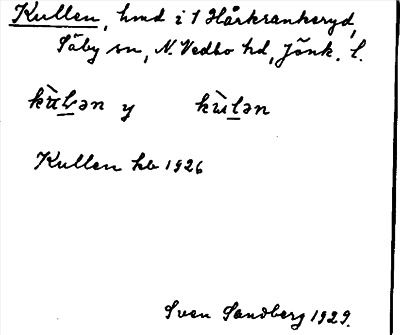 Kullen, hmd i 1 Hårkrankeryd,
Säby sn, N. Vedbo hd, Jönk. l.
kùLən y kùlən
Kullen hb 1926
Sven Sandberg 1929.